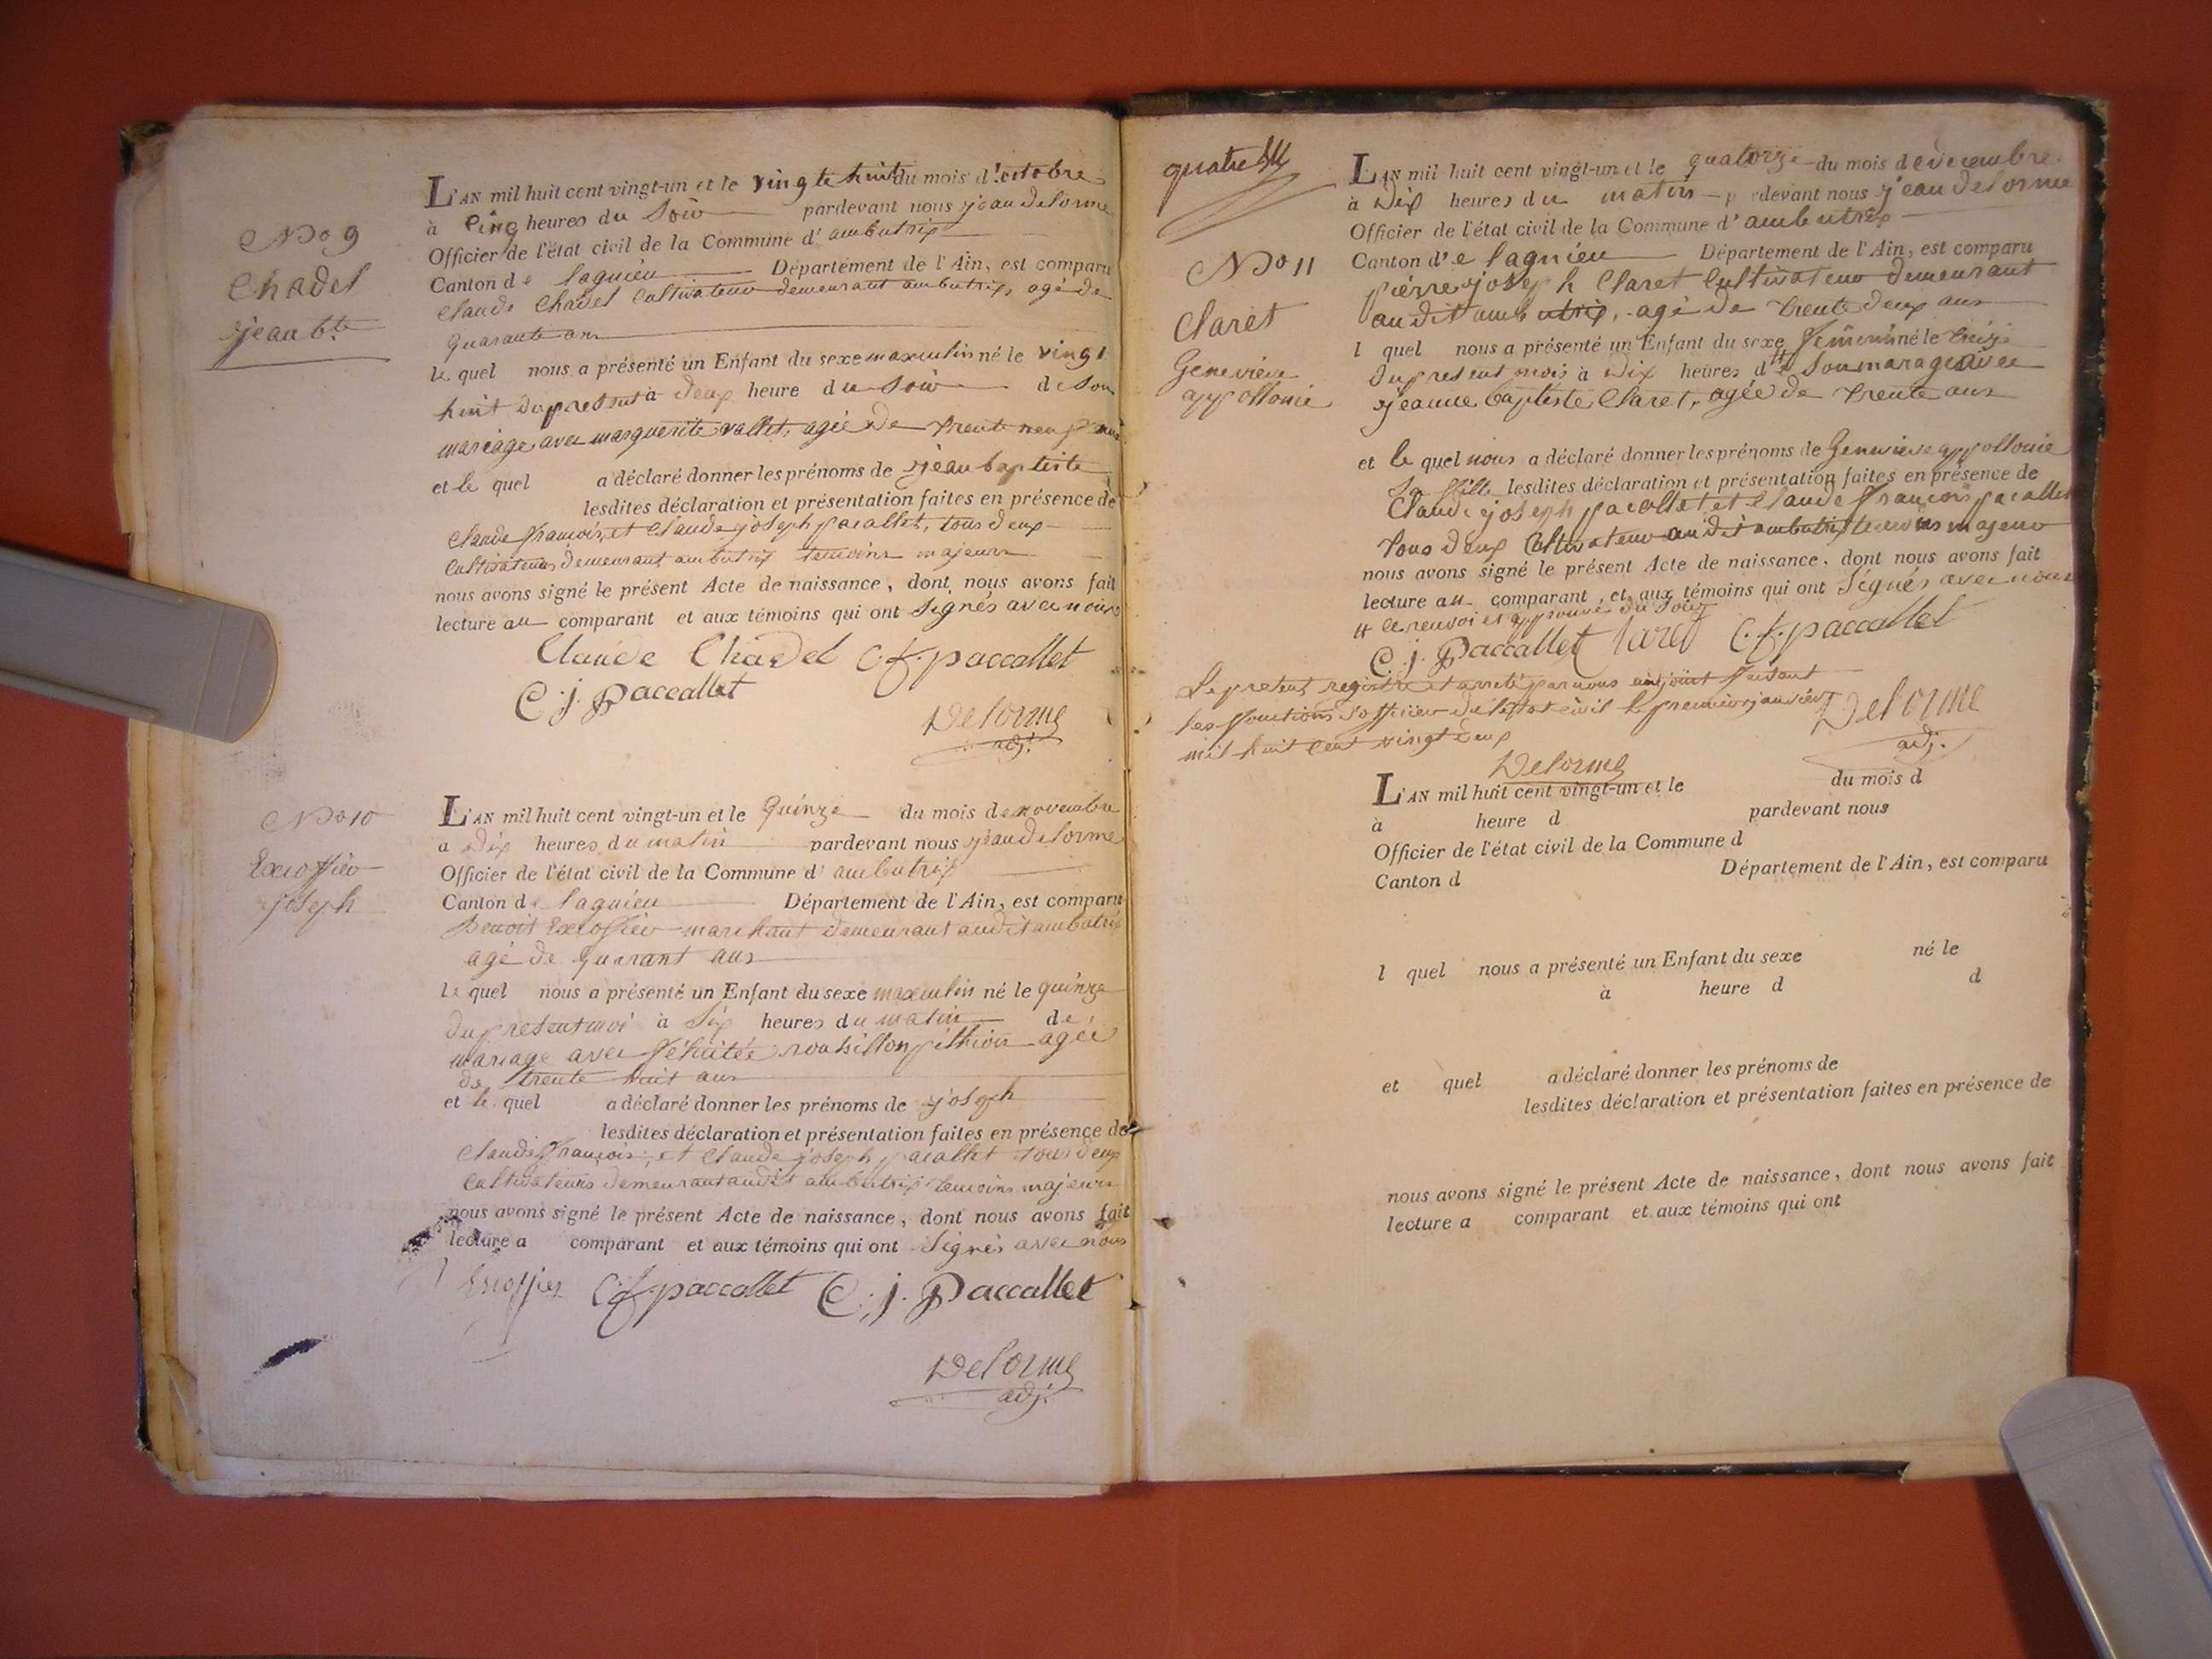 No 9
Chadel
jean bte
L'AN mil huit cent vingt-un et le vingt huit du mois d'octobre
à cinq heures du soir pardevant nous jean delorme
Officier de l'état civil de la Commune d'ambutrix
Canton de lagnieu Département de l'Ain, est comparu
claude Chadel Cultivateur demeurant ambutrix agé de
quarante ans
le quel nous a présenté un Enfant du sexe masculin né le vingt
huit du present à deux heure du soir de son
mariage avec marguerite vallet, agée de trente neuf ans
et le quel a déclaré donner les prénoms de jean baptiste
lesdites déclaration et présentation faites en présence de
claude francois, et claude joseph pacallet, tous deux
Cultivateurs demeurant ambutrix temoins majeurs
nous avons signé le présent Acte de naissance, dont nous avons fait
lecture au comparant et aux témoins qui ont signés avec nous
Claude Chadel C. f. paccallet
C. j. paccallet
Delorme
adj.
No 10
Excoffier
joseph
L'AN mil huit cent vingt-un et le quinze du mois de novembre
a Dix heures du matin pardevant nous jean delorme
Officier de l'état civil de la Commune d'ambutrix
Canton de lagnieu Département de l'Ain, est comparu
Benoit Excoffier marchant demeurant audit ambutrix
agé de quarant ans
le quel nous a présenté un Enfant du sexe masculin né le quinze
du present moi à six heures du matin de
mariage avec félicitée roussillon pithion agée
de trente huit ans
et le quel a déclaré donner les prénoms de joseph
lesdites déclaration et présentation faites en présence de
claude francois, et claude joseph pacallet tous deux
Cultivateurs demeurant audit ambutrix temoins majeurs
nous avons signé le présent Acte de naissance, dont nous avons fait
lecture a comparant et aux témoins qui ont signés avec nous
Excoffier C. f. paccallet C. j. Paccallet
Delorme
adj.
quatre
No 11
Claret
Genevieve
appollonie
L'AN mil huit cent vingt-un et le quatorze du mois de decembre
à Dix heures du matin pardevant nous jean delorme
Officier de l'état civil de la Commune d'ambutrix
Canton d'e lagnieu Département de l'Ain, est comparu
pierre joseph Claret Cultivateur demeurant
audit ambutrix, agé de trente deux ans
l quel nous a présenté un Enfant du sexe féminin né le treize
du present mois à Dix heures d # son marage avec
jeanne baptiste Claret, agée de trente ans
et le quel nous a déclaré donner les prénoms de Genevieve appollonie
sa fille lesdites déclaration et présentation faites en présence de
Claude joseph pacollet et claude francois pacallet
tous deux Cultivateur audit ambutrix temoins majeur
nous avons signé le présent Acte de naissance, dont nous avons fait
lecture au comparant, et aux témoins qui ont signés avec nous
# le renvoi est approuvé du soir
C. j. Paccallet Claret C. f. paccallet
Le present registre et arreté par nous adjoint faisant
les fonctions d'officier de l'etat civil le premier janvier
mil huit cent vingt deux
Delorme
adj.
Delorme
L'AN mil huit cent vingt-un et le du mois d
à heure d pardevant nous
Officier de l'état civil de la Commune d
Canton d Département de l'Ain, est comparu
l quel nous a présenté un Enfant du sexe né le
à heure d d
et quel a déclaré donner les prénoms de
lesdites déclaration et présentation faites en présence de
nous avons signé le présent Acte de naissance, dont nous avons fait
lecture a comparant et aux témoins qui ont